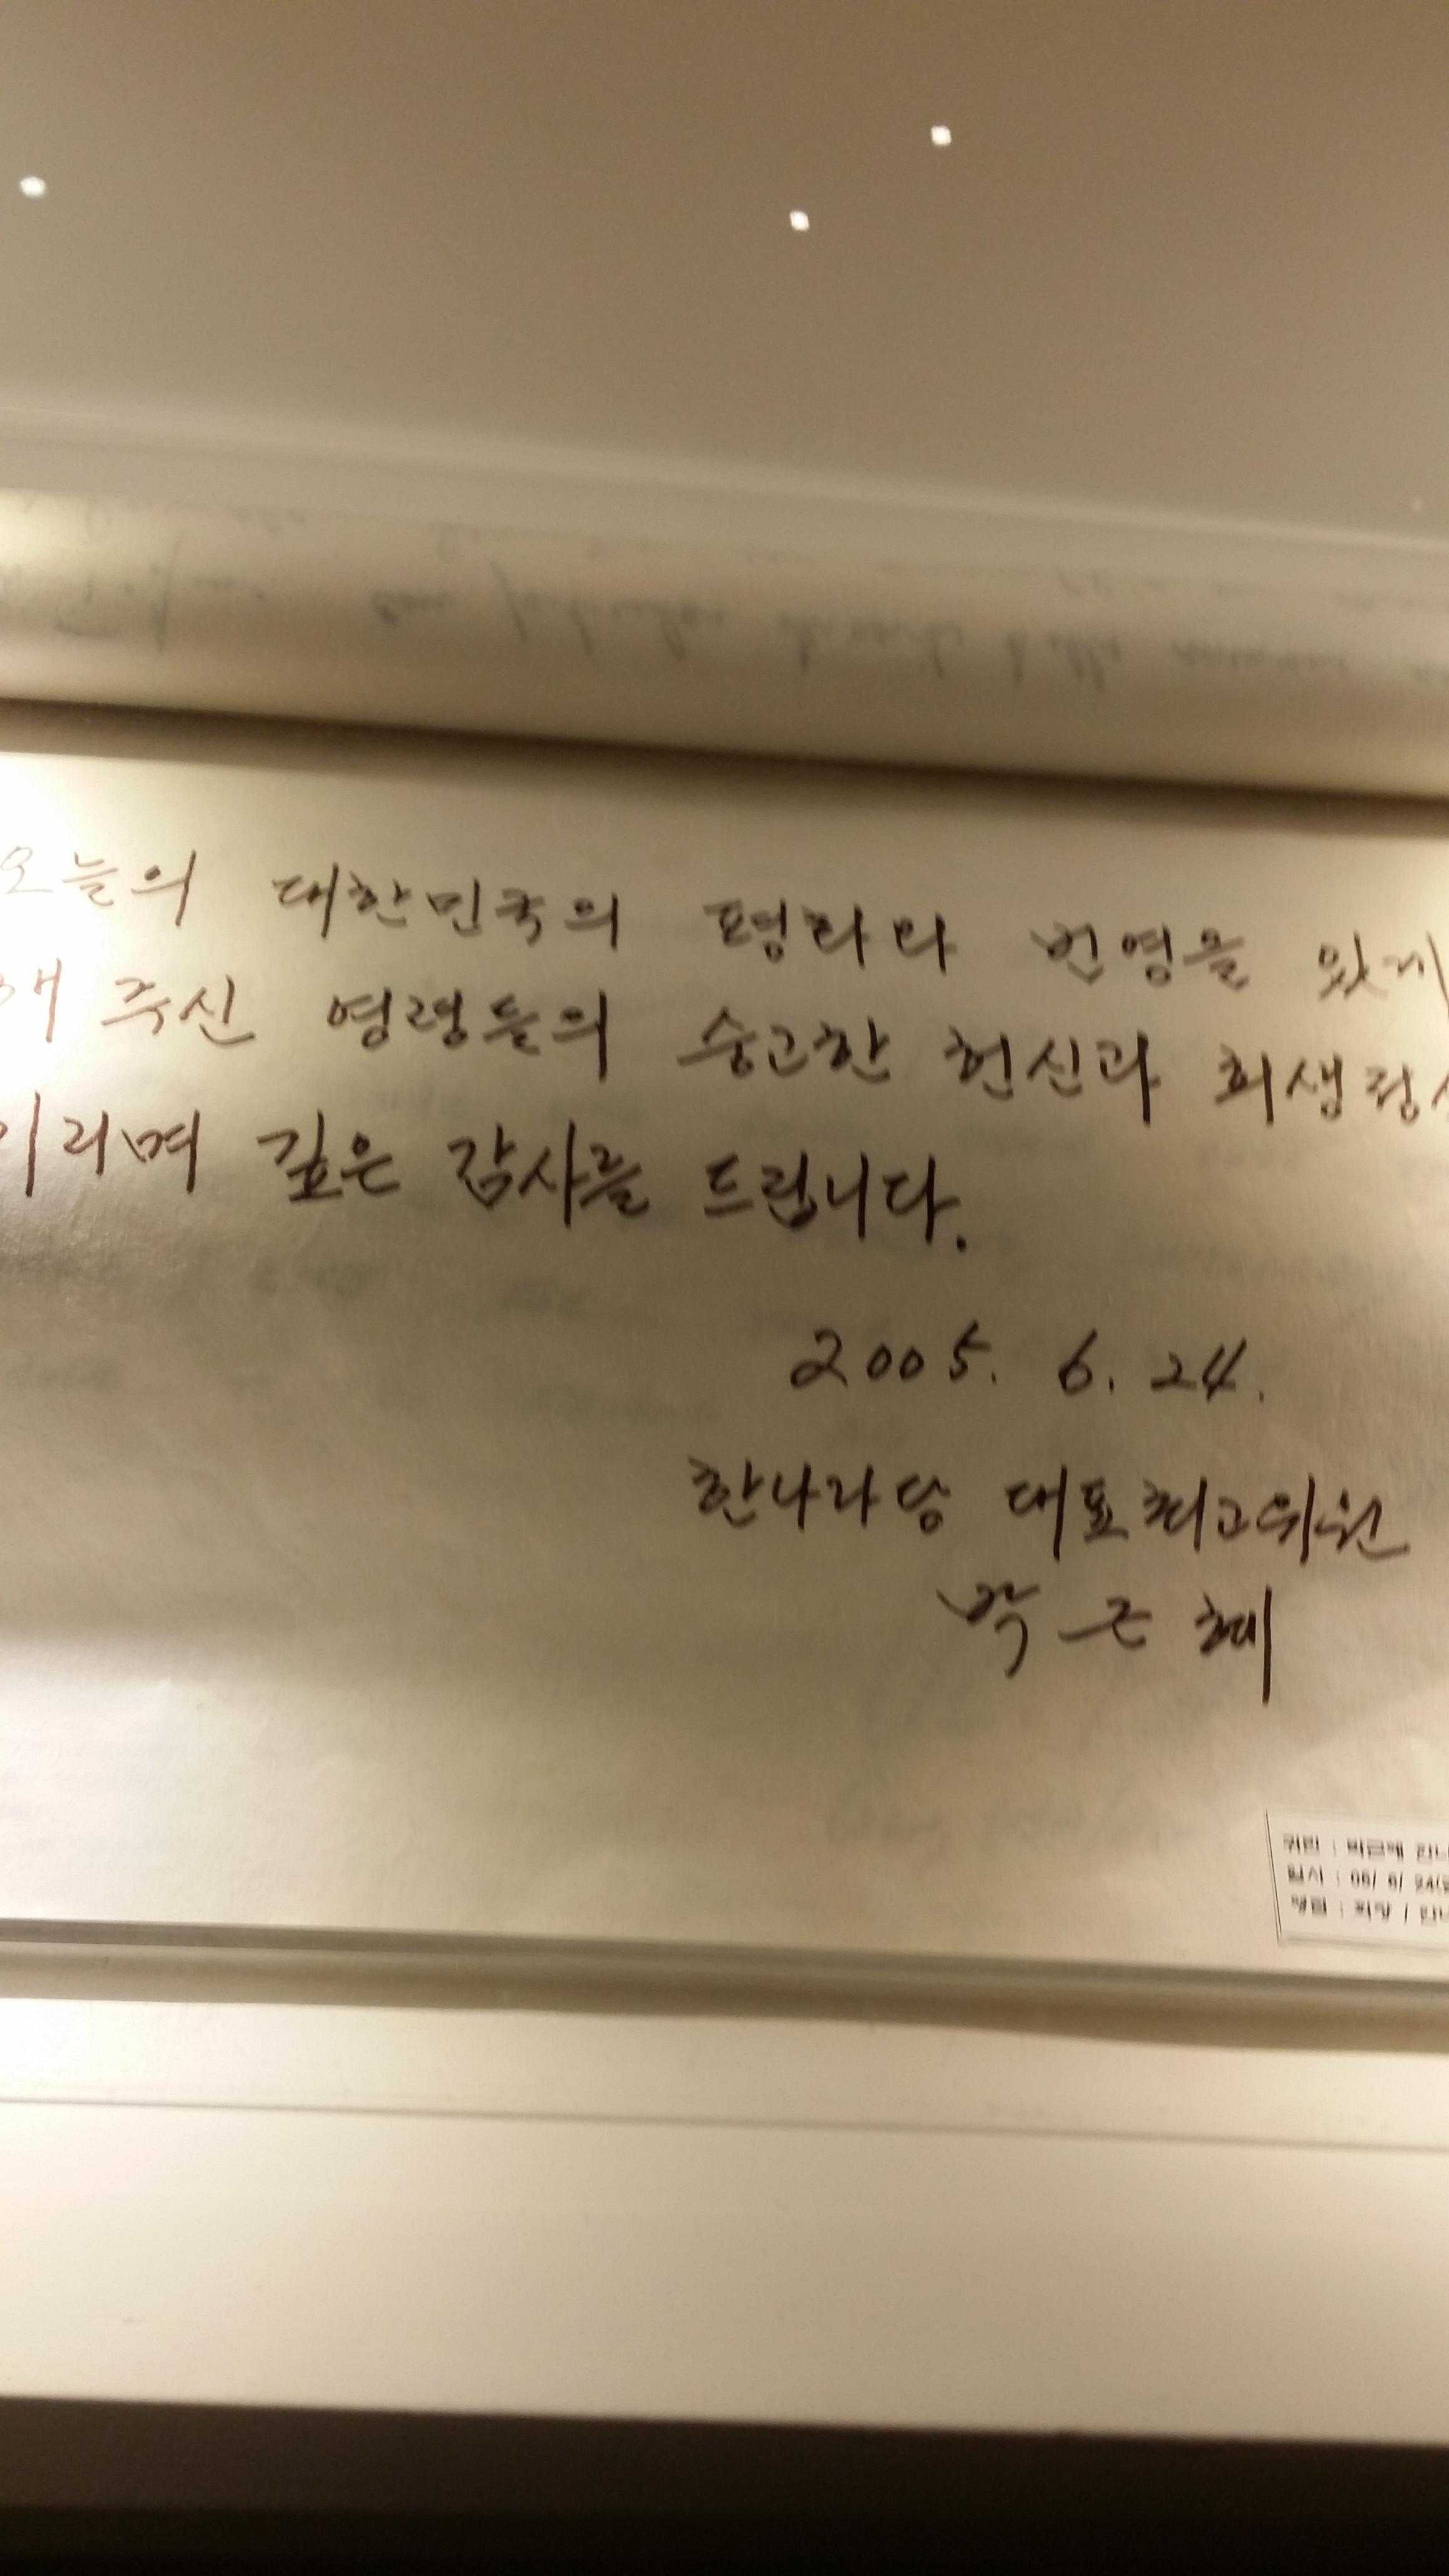 오늘의 대한민국의 평화와 번영을 있게
해 주신 영령들의 숭고한 헌신과 희생정신
기리며 깊은 감사를 드립니다.
2005. 6. 24.
한나라당 대표최고위원
박근혜
귀빈 : 박근혜 한나
일시 : 05/ 6/ 24(